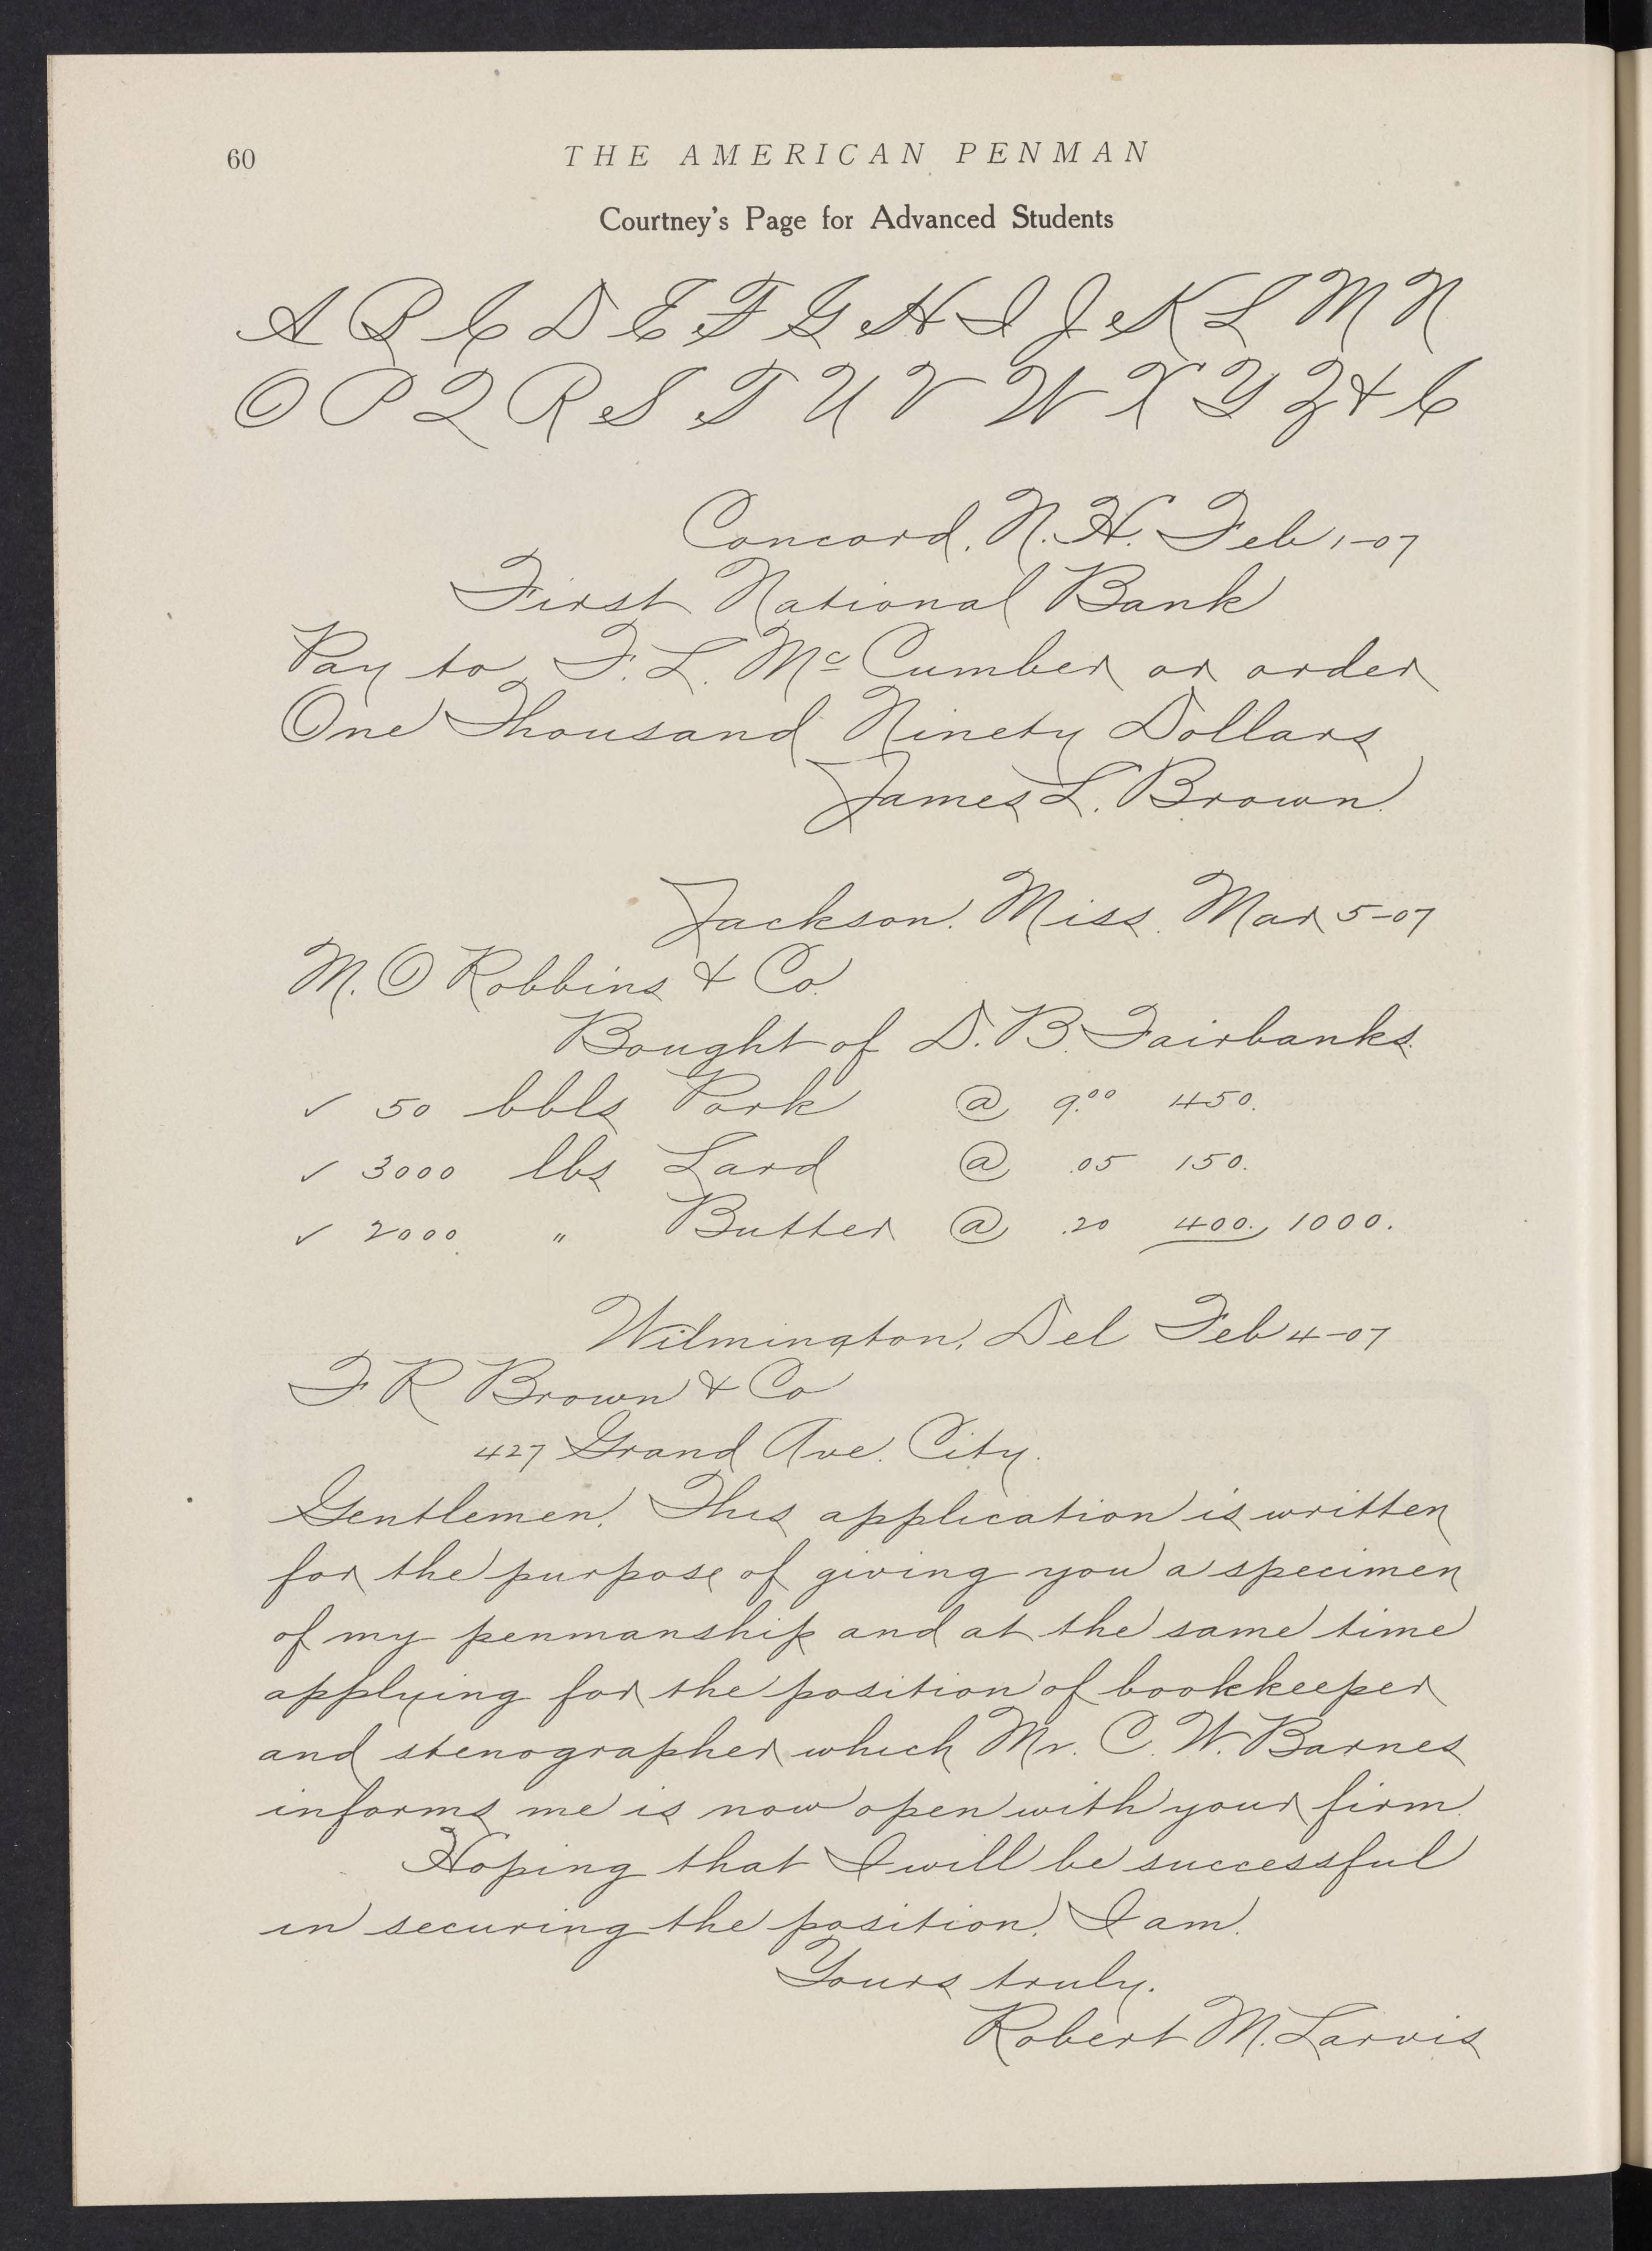 60
THE AMERICAN PENMAN
Courtney's Page for Advanced Students
A B C D E F G H I J K L M N
O P Q R S T U V W X Y Z & C
Concord, N. H. Feb 1-07
First National Bank
Pay to F. L. McCumber or order
One Thousand Ninety Dollars
James L. Brown.
Jackson, Miss. Mar 5-07
M. O Robbins & Co.
Bought of D. B. Fairbanks.
✓ 50 bbls Pork @ 9.00 450.
✓ 3000 lbs Lard @ .05 150.
✓ 2000 " Butter @ .20 400. 1000.
Wilmington, Del Feb 4-07
F R Brown & Co
427 Grand Ave. City.
Gentlemen, This application is written
for the purpose of giving you a specimen
of my penmanship and at the same time
applying for the position of bookkeeper
and stenographer which Mr. C. W. Barnes
informs me is now open with your firm.
Hoping that I will be successful
in securing the position, I am.
Yours truly.
Robert M. Larvis